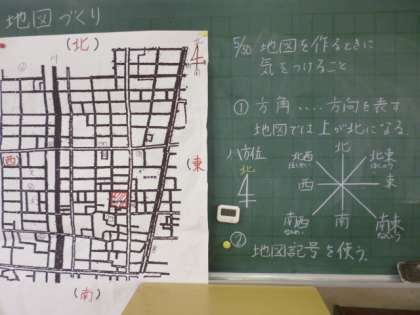 地図づくり
(北)
(西)
(東)
(南)
5/30 地図を作るときに
気をつけること
① 方角‥‥方向を表す
地図では上が北になる
八方位
北
北
北西
北東
西
東
南西
南
南東
② 地図記号を使う。